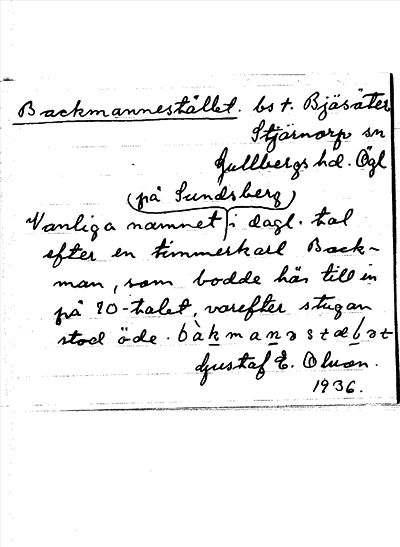 Backmannestället. bs t. Bjäsäter
Stjärnorp sn
Gullbergs hd. Ögl
(på Sundsberg)
Vanliga namnet i dagl. tal
efter en timmerkarl Back-
man, som bodde här till in
på 70-talet, varefter stugan
stod öde. bàkmanəstælət
Gustaf E. Olson.
1936.